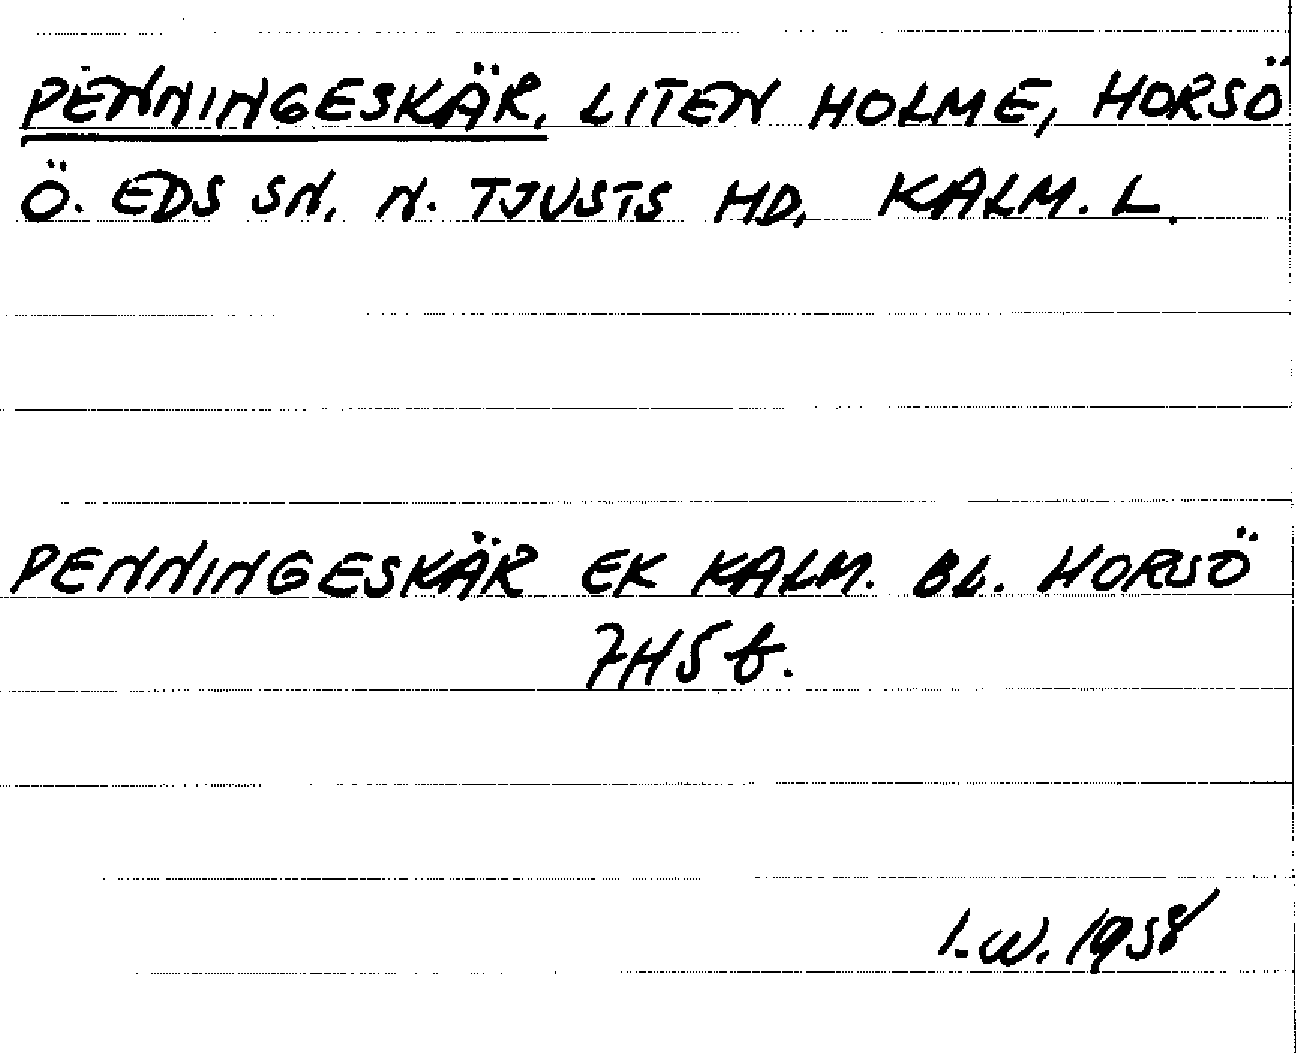 PENNINGESKÄR, LITEN HOLME, HORSÖ
Ö. EDS SN. N. TJUSTS HD, KALM. L.
PENNINGESKÄR EK KALM. BL. HORSÖ
7H5b.
I.W. 1958